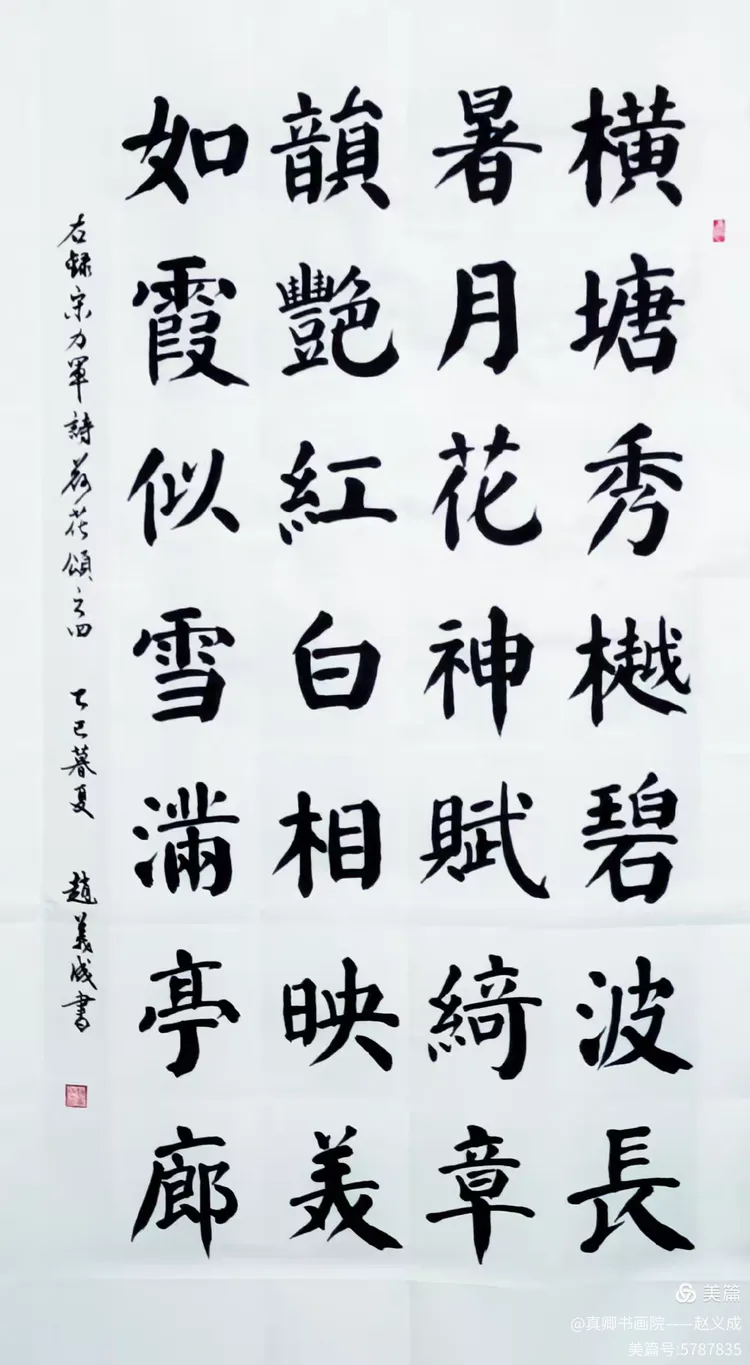 橫塘秀樾碧波長
暑月花神賦綺章
韻艷紅白相映美
如霞似雪滿亭廊
右録宋力軍詩荷花頌之四 乙巳暮夏 趙義成書
美篇
@真卿书画院——赵义成
美篇号:5787835